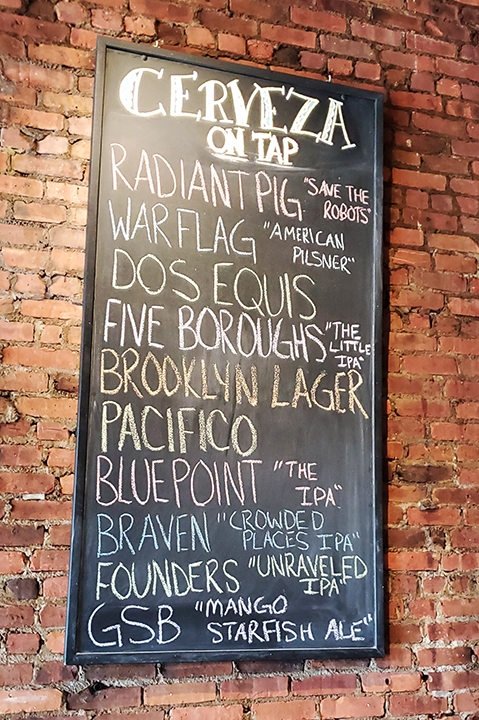 CERVEZA
ON TAP
RADIANT PIG "SAVE THE ROBOTS"
WAR FLAG "AMERICAN PILSNER"
DOS EQUIS
FIVE BOROUGHS "THE LITTLE IPA"
BROOKLYN LAGER
PACIFICO
BLUEPOINT "THE IPA"
BRAVEN "CROWDED PLACES IPA"
FOUNDERS "UNRAVELED IPA"
GSB "MANGO STARFISH ALE"